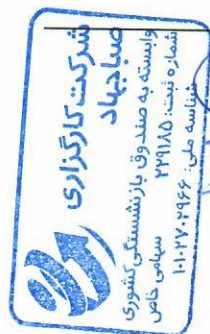 شرکت کارگزاری
صبا جهاد
وابسته به صندوق بازنشستگی کشوری
سهامی خاص
شماره ثبت: ۲۲۹۱۸۵
شناسه ملی: ۱۰۱۰۲۷۰۲۹۶۶